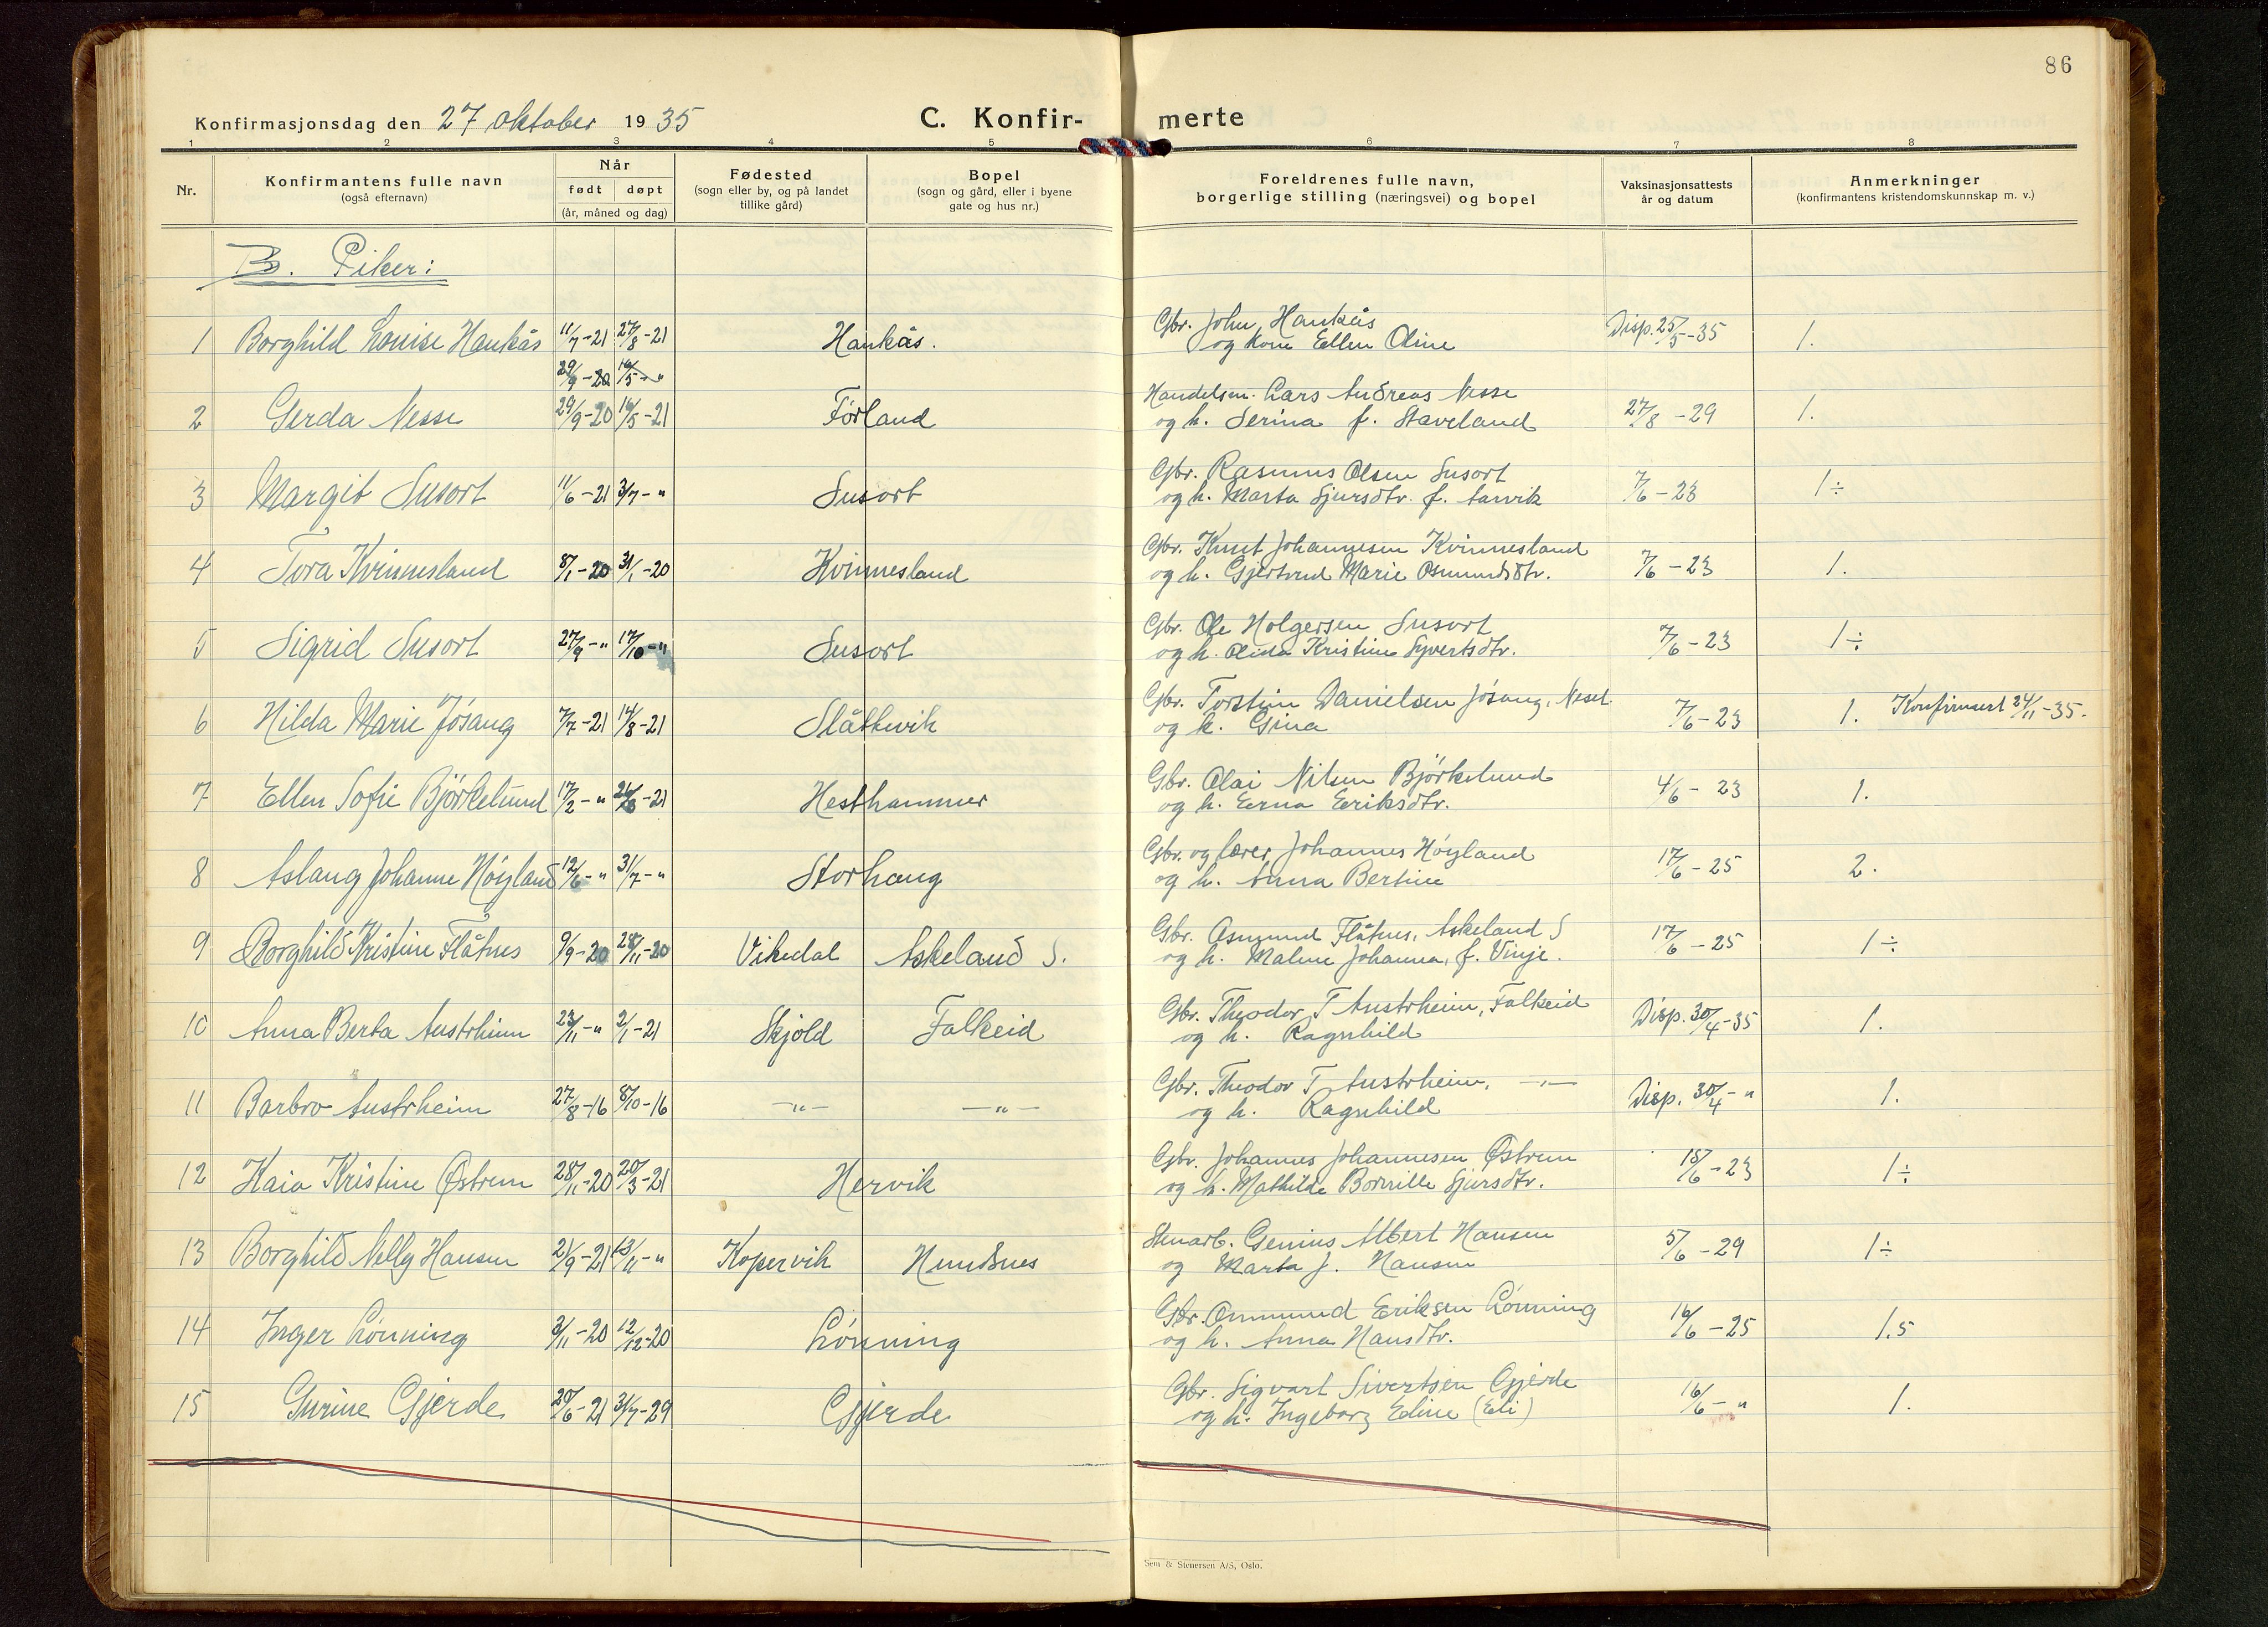 86
Konfirmasjonsdag den 27 oktober 1935
C. Konfir- merte
1 2 3 4 5 6 7 8
Nr. Konfirmantens fulle navn (også efternavn) Når født døpt (år, måned og dag) Fødested (sogn eller by, og på landet tillike gård) Bopel (sogn og gård, eller i byene gate og hus nr.) Foreldrenes fulle navn, borgerlige stilling (næringsvei) og bopel Vaksinasjonsattests år og datum Anmerkninger (konfirmantens kristendomskunnskap m. v.)
B. Piker:
1 Borghild Louise Haukås 11/7-21 27/8-21 Haukås. Gbr. John Haukås Disp. 25/5-35 1.
og kone Ellen Oline
29/9-20 16/5-"
2 Gerda Nesse 29/9-20 16/5-21 Førland Handelsm. Lars Andreas Nesse 27/8-29 1.
og h. Serina f. Staveland
3 Margit Susort 11/6-21 3/7-" Susort Gbr. Rasmus Olsen Susort 7/6-23 1÷
og h. Marta Sjursdtr. f. Aarvik
4 Tora Kvinnesland 8/1-20 31/1-20 Kvinnesland Gbr. Knut Johannesen Kvinnesland 7/6-23 1.
og h. Gjertrud Marie Osmundsdtr.
5 Sigrid Susort 27/9-" 17/10-" Susort Gbr. Ole Holgersen Susort 7/6-23 1÷
og h. Olida Kristine Syvertsdtr.
6 Hilda Marie Jósang 7/7-21 14/8-21 Slåttevik Gbr. Torstein Danielsen Jósang, Neset. 7/6-23 1. Konfirmert 24/11-35.
og k. Gina
7 Ellen Sofie Bjórkelund 17/2-" 26/6-21 Hesthammer Gbr. Olai Nilsen Bjórkelund 4/6-23 1.
og h. Eerna Eeriksdtr.
8 Aslaug Johanne Hóyland 12/6-" 31/7-" Storhaug Gbr. og lærer Johannes Hóyland 17/6-25 2.
og h. Anna Bertine
9 Borghild Kristine Flåtnes 9/9-20 28/11-20 Vikedal Askeland S. Gbr. Asmund Flåtnes, Askeland S 17/6-25 1÷
og h. Malene Johanna, f. Vinje.
10 Anna Berta Austrheim 23/11-" 2/1-21 Skjold Falkeid Gbr. Theodor T Austrheim, Falkeid Disp. 30/4-35 1.
og h. Ragnhild
11 Barbro Austrheim 27/8-16 8/10-16 -"- -"- Gbr. Theodor T Austrheim, -"- Disp. 30/4-" 1.
og h. Ragnhild
12 Kaia Kristine Østrem 28/11-20 20/3-21 Hervik Gbr. Johannes Johannesen Østrem 18/6-23 1÷
og h. Mathilde Bornille Sjursdtr.
13 Borghild Nelly Hansen 2/9-21 13/11-" Kopervik Hundsnes Stenarb. Genius Albert Hansen 5/6-29 1÷
og Marta J. Hansen
14 Inger Lónning 3/11-20 12/12-20 Lónning Gbr. Ommund Eriksen Lónning 16/6-25 1,5
og h. Anna Hansdtr.
15 Gurine Gjerde 20/6-21 31/7-29 Gjerde Gbr. Sigvart Sivertsen Gjerde 16/6-" 1.
og h. Ingeborg Eline (Eli)
Sem & Stenersen A/S, Oslo.